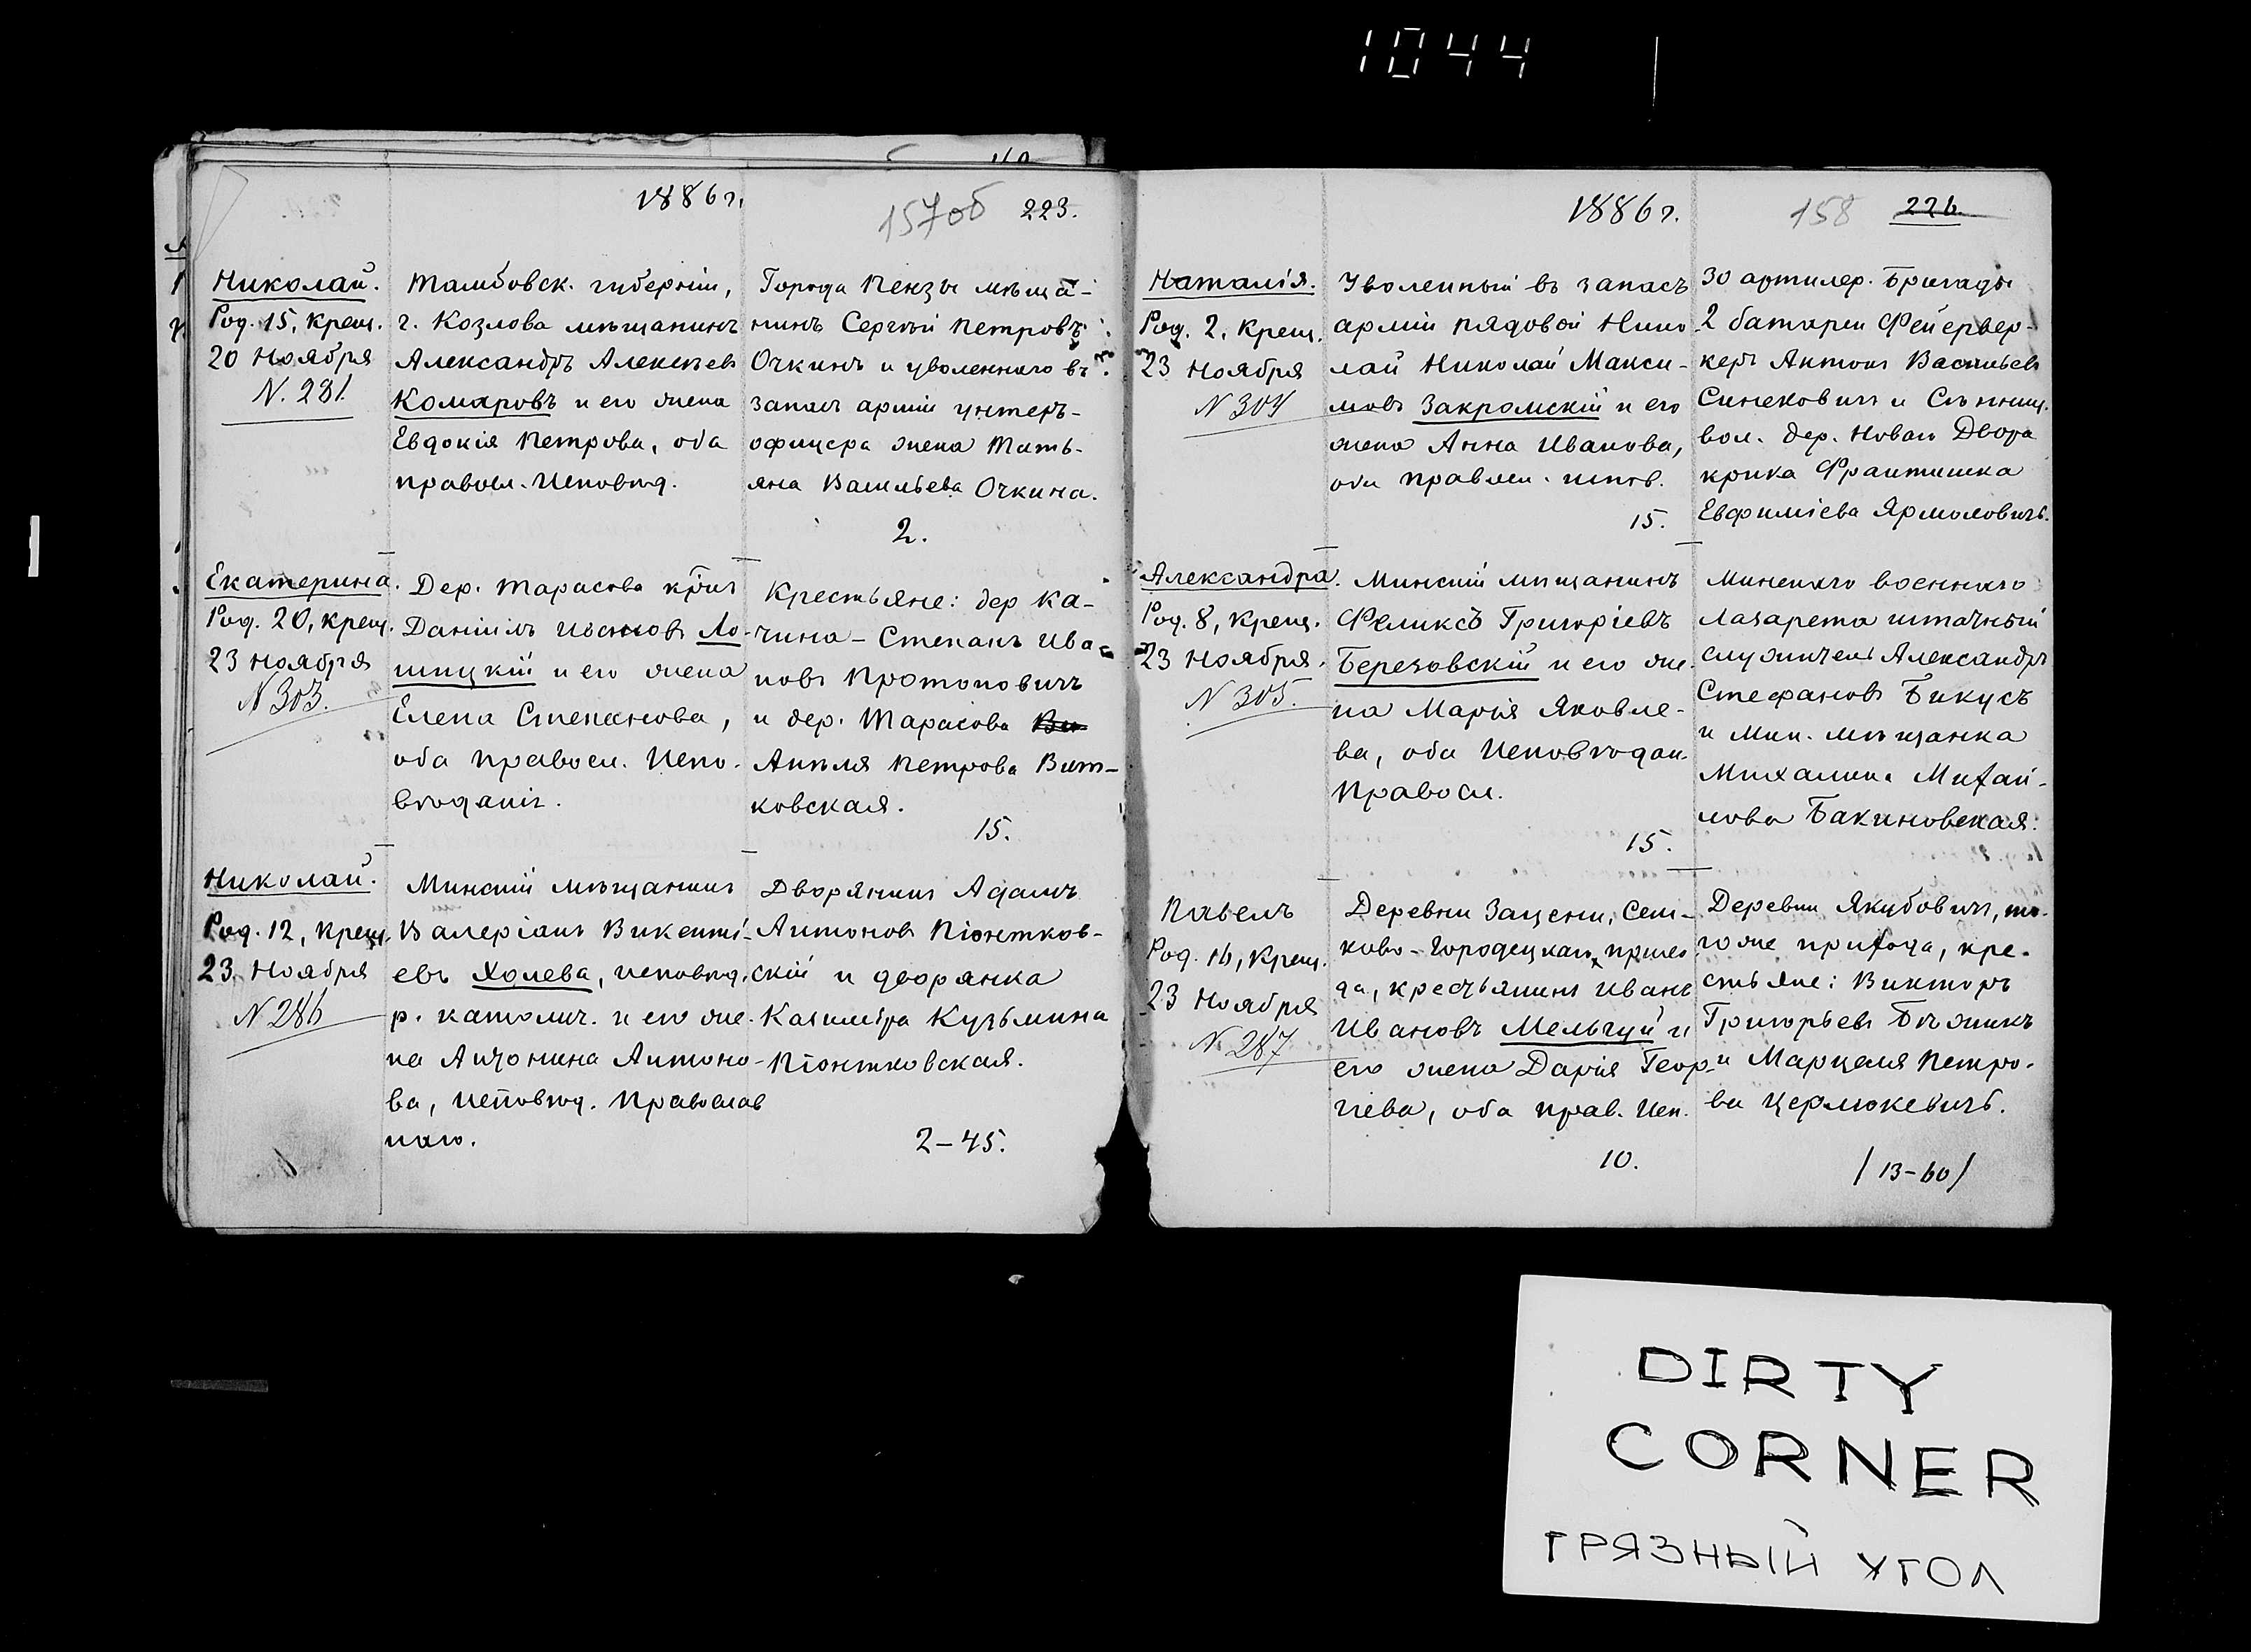 1044
1886 г.
157об 223.
Николай.
Род. 15, Крещ.
20 Ноября
N. 281.
Тамбовск. губернiи,
г. Козлова мѣщанинъ
Александръ Алексѣевъ
Комаровъ и его жена
Евдокiя Петрова, оба
правосл. Исповѣд.
Города Пензы мѣща-
нинъ Сергѣй Петровъ
Очкинъ и уволеннаго въ
запасъ армiи унтеръ-
офицера жена Тать-
яна Васильева Очкина.
2.
Екатерина.
Род. 20, Крещ.
23 Ноября
N 303.
Дер. Тарасова кр-нъ
Данiилъ Ивановъ Ло-
шицкiй и его жена
Елена Степанова,
оба правосл. Испо-
вѣданiя.
Крестьяне: дер Ка-
чина - Степанъ Ива-
новъ Протоповичъ
и дер. Тарасова
Анѣля Петрова Вит-
ковская.
15.
Николай.
Род. 12, Крещ.
23 Ноября
N 286
Минскiй мѣщанинъ
Валерiанъ Викентi-
евъ Холева, исповѣд.
р. католич. и его же-
на Антонина Антоно-
ва, исповѣд. Православ
наго.
Дворянинъ Адамъ
Антоновъ Пiонтков-
скiй и дворянка
Казимiра Кузьмина
Пiонтковская.
2-45.
1886 г.
158 226.
Наталiя.
Род. 2, Крещ.
23 Ноября
N 304
Уволенный въ запасъ
армiи рядовой Нико
лай Николай Макси-
мовъ Закромскiй и его
жена Анна Иванова,
оба правосл. испов.
15.
30 артилер. Бригады
2 батареи Фейервер-
керъ Антонъ Васильевъ
Синековичъ и Сѣнниц.
вол. дер. Новаго Двора
кр-нка Франтишка
Евфимiева Ярмоловичъ.
Александра.
Род. 8, Крещ.
23 Ноября.
N 305.
Минскiй мѣщанинъ
Феликсъ Григорiевъ
Березовскiй и его же-
на Марiя Яковле-
ва, оба Исповѣдан.
Правосл.
15.
Минскаго военнаго
лазарета штатный
служитель Александръ
Стефановъ Бикусъ
и Мин. мѣщанка
Михалина Михай-
лова Бакиновская.
Павелъ
Род. 16, Крещ.
23 Ноября
N. 287
Деревни Зацени, Сен-
ково-Городецкаго прихо
да, крестьянинъ Иванъ
Ивановъ Мельгуй и
его жена Дарiя Геор-
гiева, оба прав. Исп.
10.
Деревни Якубовичъ, то-
гоже прихода, кре-
стьяне: Викторъ
Григорьевъ Бѣжикъ
и Марцеля Петро-
ва Цермокевичъ.
/ 13-60 /
DIRTY
CORNER
ГРЯЗНЫЙ УГОЛ